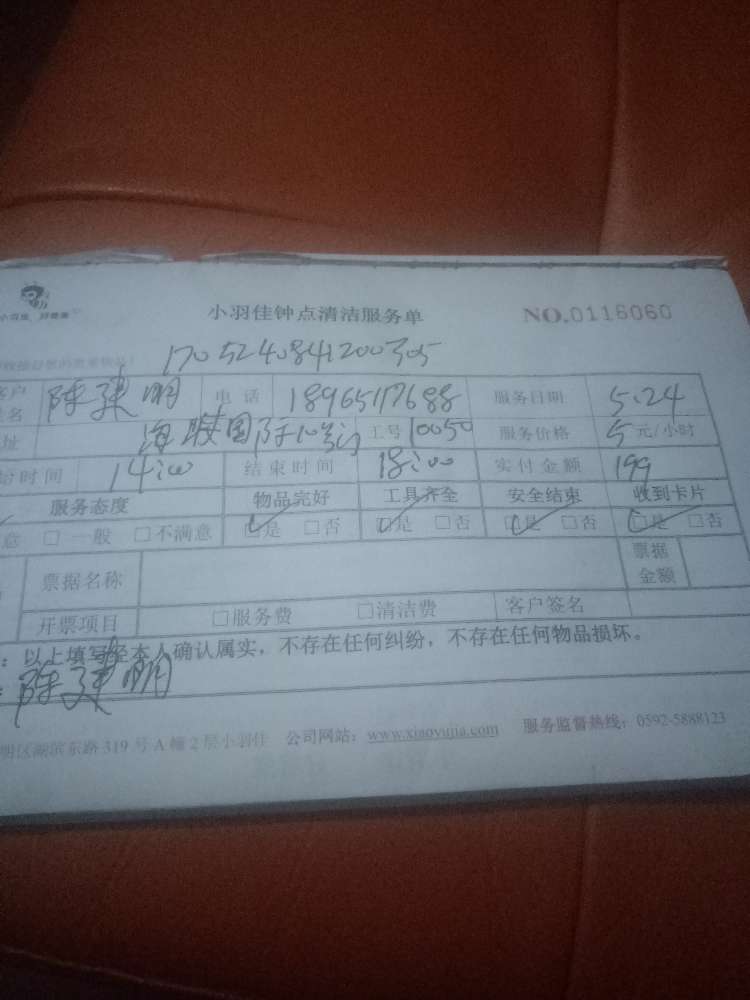 小羽佳钟点清洁服务单 NO.0116060
1705240841200305
客户 陈建明 电话 18965117688 服务日期 5.24
姓名
址 海联国际 工号 10050 服务价格 5 元/小时
始时间 14:00 结束时间 18:00 实付金额 199
服务态度 物品完好 工具齐全 安全结束 收到卡片
意 □一般 □不满意 □是 □否 □是 □否 □是 □否 □是 □否
票据名称 票据
金额
开票项目 □服务费 □清洁费 客户签名
：以上填写经本人确认属实，不存在任何纠纷，不存在任何物品损坏。
：陈建明
明区湖滨东路319号A幢2层小羽佳 公司网站：www.xiaoyujia.com 服务监督热线：0592-5888123